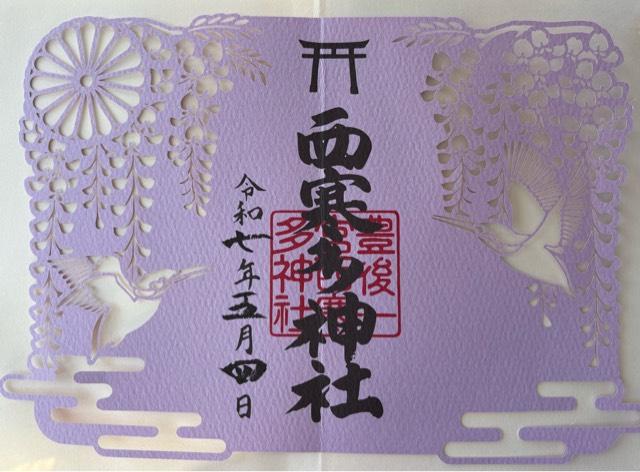 西寒多神社
令和七年五月四日
豊後一
宮西寒
多神社